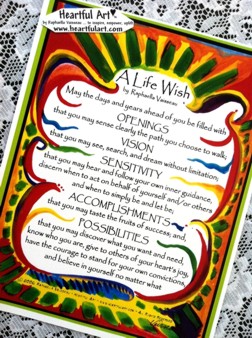 Heartful Art
by Raphaella Vaisseau ... to inspire, empower, uplift!
www.heartfulart.com
A Life Wish
by Raphaella Vaisseau
May the days and years ahead of you be filled with
OPENINGS
that you may sense clearly the path you choose to walk;
VISION
that you may see, search, and dream without limitation;
SENSITIVITY
that you may hear and follow your own inner guidance,
discern when to act on behalf of yourself and/or others
and when to simply be and let be;
ACCOMPLISHMENTS
that you may taste the fruits of success; and,
POSSIBILITIES
that you may discover what you want and need,
know who you are, give to others of your heart's joy,
have the courage to stand for your own convictions,
and believe in yourself no matter what